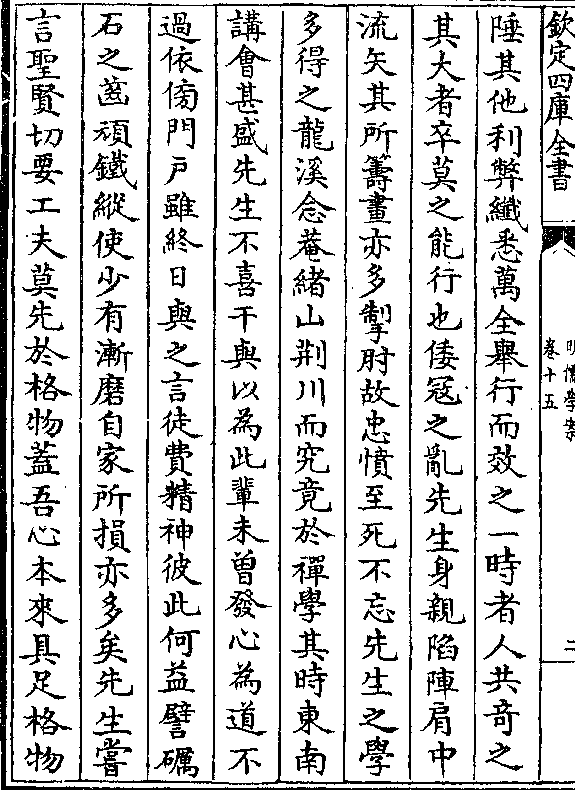 欽定四庫全書
明儒學案
卷十五
二
陲其他利弊纖悉萬全舉行而效之一時者人共奇之
其大者卒莫之能行也倭冦之亂先生身親陷陣肩中
流矢其所籌畫亦多掣肘故忠憤至死不忘先生之學
多得之龍溪念菴緒山荆川而究竟於禪學其時東南
講會甚盛先生不喜干與以為此輩未曽發心為道不
過依傍門戸雖終日與之言徒費精神彼此何益譬礪
石之齒頑鐵縱使少有漸磨自家所損亦多矣先生嘗
言聖賢切要工夫莫先於格物蓋吾心本來具足格物